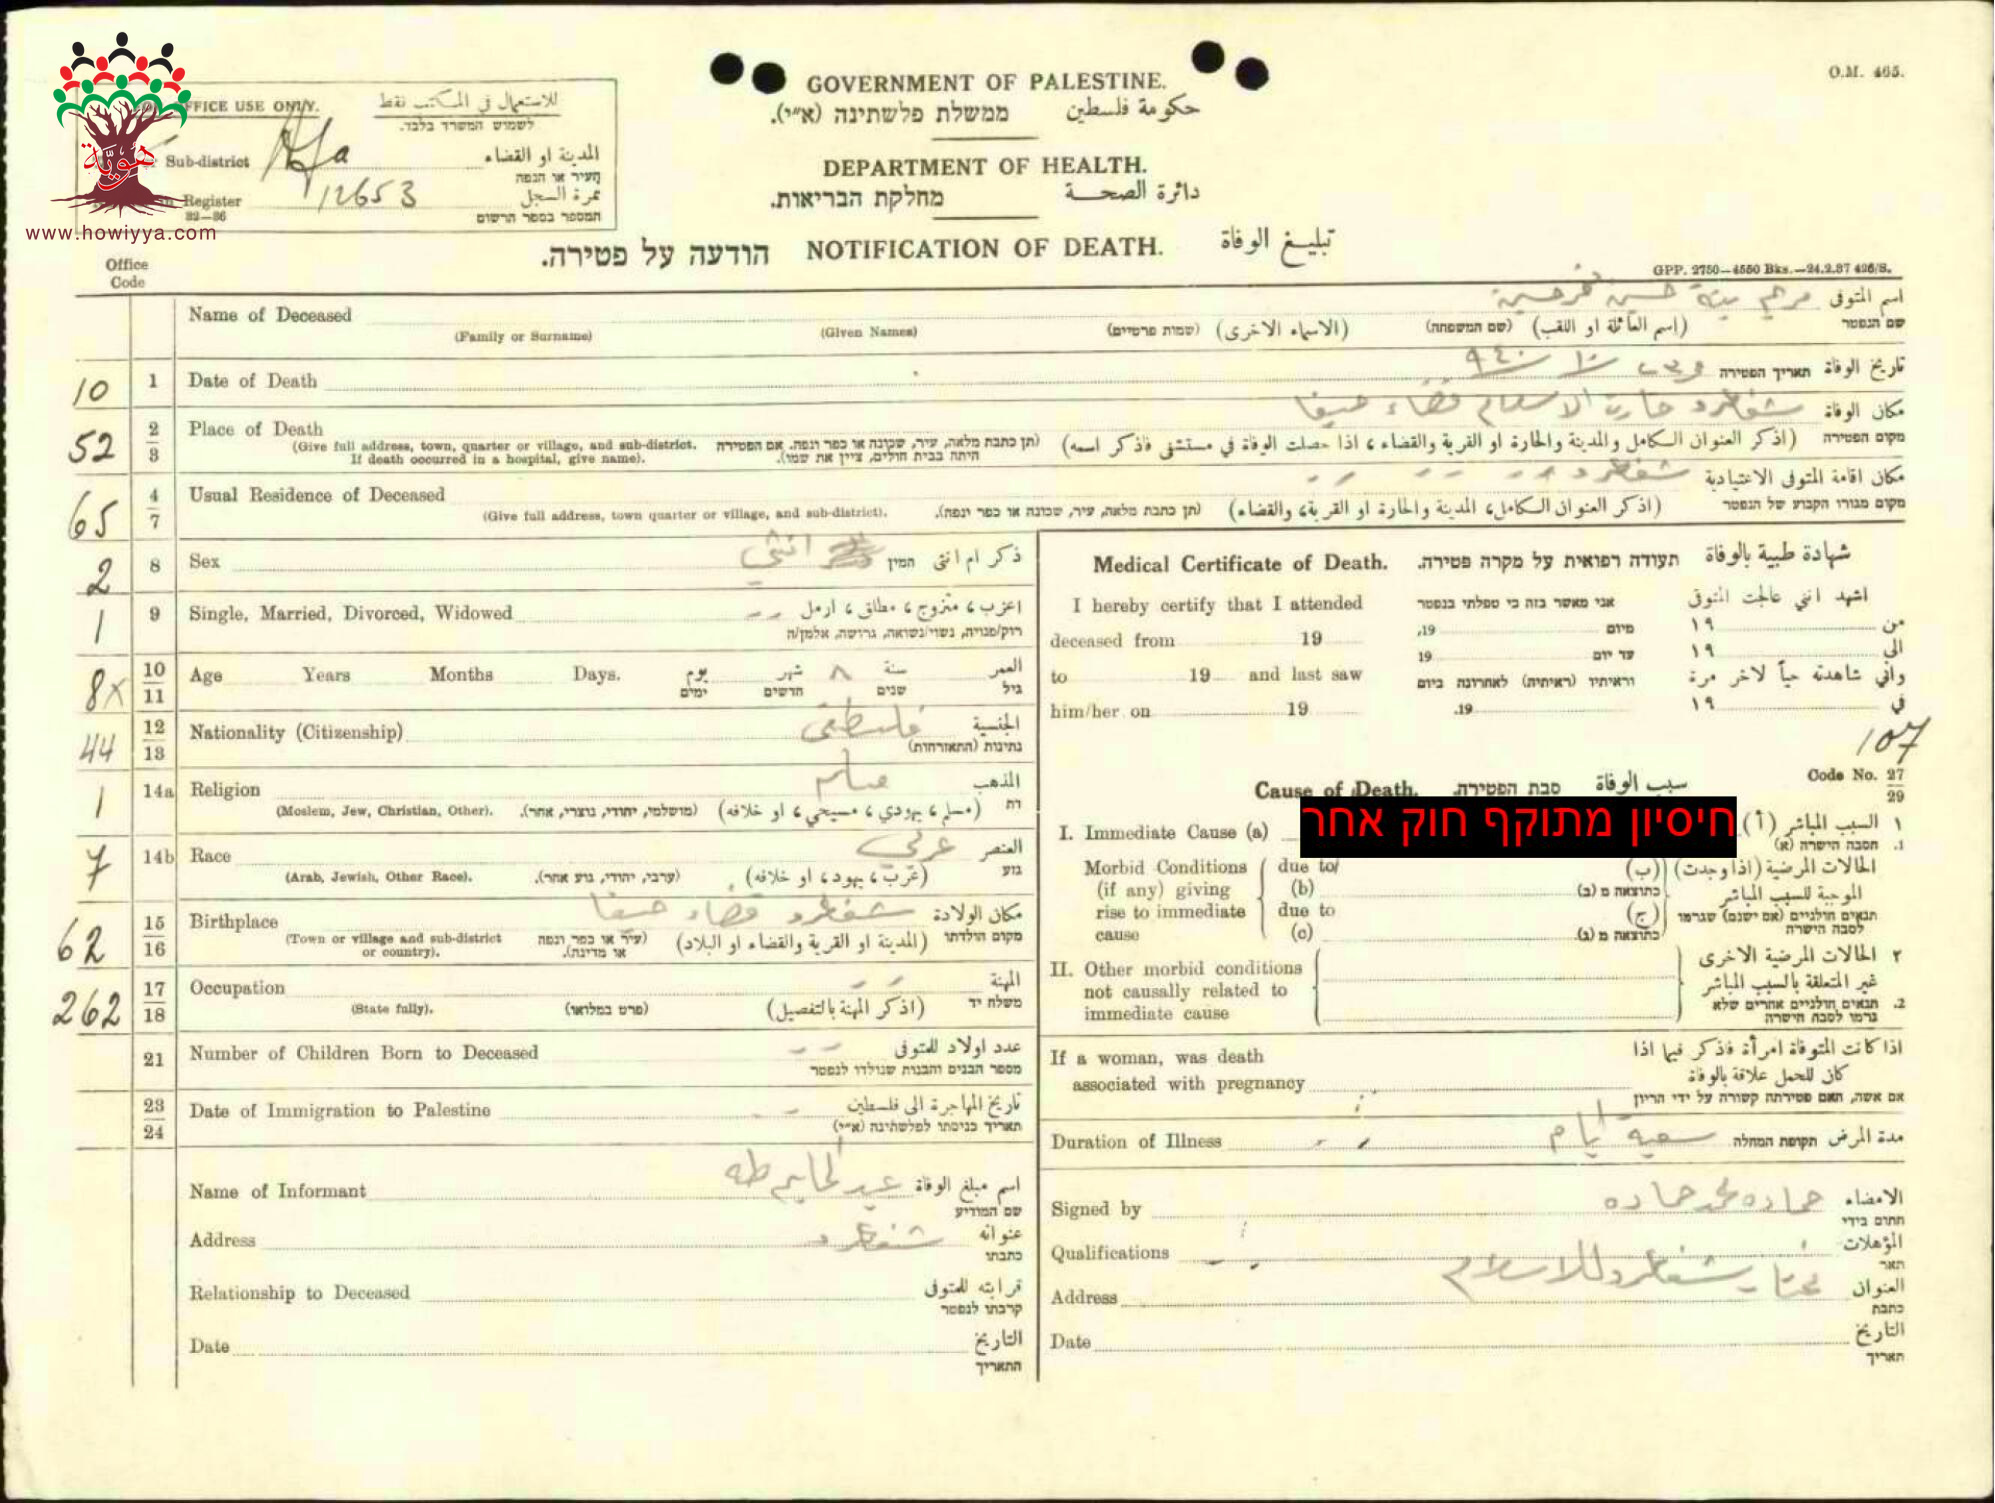 O.M. 465.
GOVERNMENT OF PALESTINE.
ממשלת פלשתינה (א״י). حكومة فلسطين
DEPARTMENT OF HEALTH.
מחלקת הבריאות. دائرة الصحة
OFFICE USE ONLY. للاستعمال في المكتب فقط
לשמוש המשרד בלבד.
Sub-district المدينة او القضاء
העיר או הנפה
Register 12653 نمرة السجل
המספר בספר הרשום
هوية
www.howiyya.com
הודעה על פטירה. NOTIFICATION OF DEATH. تبليغ الوفاة
Office
Code
GPP. 2750—4550 Bks.—24.2.37 426/S.
Name of Deceased مريم بنت حسين اسم المتوفى
(Family or Surname) (Given Names) (שמות פרטיים) (الاسماء الاخرى) (שם המשפחה) (اسم العائلة او اللقب) שם הנפטר
10 1 Date of Death תאריך הפטירה تاريخ الوفاة
52 2/3 Place of Death شفاعمرو حارة الاسلام قضاء حيفا مكان الوفاة
(Give full address, town, quarter or village, and sub-district. If death occurred in a hospital, give name).
(תן כתבת מלאה, עיר, שכונה או כפר ונפה. אם הפטירה היתה בבית חולים, ציין את שמו).
(اذكر العنوان الكامل والمدينة والحارة او القرية والقضاء، اذا حصلت الوفاة في مستشفى فاذكر اسمه) מקום הפטירה
65 4/7 Usual Residence of Deceased شفاعمرو مكان اقامة المتوفى الاعتيادية
(Give full address, town quarter or village, and sub-district). (תן כתבת מלאה, עיר, שכונה או כפר ונפה). (اذكر العنوان الكامل، المدينة والحارة او القرية، والقضاء) מקום מגורו הקבוע של הנפטר
2 8 Sex انثى המין ذكر ام انثى
1 9 Single, Married, Divorced, Widowed اعزب، متزوج، مطلق، ارمل
רוק/פנויה, נשוי/נשואה, גרושה, אלמן/ה
8x 10/11 Age Years Months Days. يوم شهر ٨ سنة العمر
ימים חדשים שנים גיל
44 12/13 Nationality (Citizenship) الجنسية
נתינות (התאזרחות)
1 14a Religion مسلم المذهب
(Moslem, Jew, Christian, Other). (מושלמי, יהודי, נוצרי, אחר). (مسلم، يهودي، مسيحي، او خلافه) דת
7 14b Race عربي العنصر
(Arab, Jewish, Other Race). (ערבי, יהודי, גזע אחר). (عرب، يهود، او خلافه) גזע
62 15/16 Birthplace شفاعمرو قضاء حيفا مكان الولادة
(Town or village and sub-district or country). (עיר או כפר ונפה או מדינה). (المدينة او القرية والقضاء او البلاد) מקום הולדתו
262 17/18 Occupation المهنة
(State fully). (פרט במלואו) (اذكر المهنة بالتفصيل) משלח יד
21 Number of Children Born to Deceased عدد اولاد للمتوفى
מספר הבנים והבנות שנולדו לנפטר
23/24 Date of Immigration to Palestine تاريخ المهاجرة الى فلسطين
תאריך כניסתו לפלשתינה (א״י)
Name of Informant طه اسم مبلغ الوفاة
שם המודיע
Address شفاعمرو عنوانه
כתבתו
Relationship to Deceased قرابته للمتوفى
קרבתו לנפטר
Date التاريخ
התאריך
Medical Certificate of Death. תעודה רפואית על מקרה פטירה. شهادة طبية بالوفاة
I hereby certify that I attended אני מאשר בזה כי טפלתי בנפטר اشهد انني عالجت المتوفى
deceased from 19 מיום 19, من ١٩
עד יום 19 الى ١٩
to 19 and last saw וראיתיו (ראיתיה) לאחרונה ביום واني شاهدته حياً لآخر مرة
him/her on 19 19. في ١٩
107
Code No. 27/29
Cause of Death. סבת הפטירה. سبب الوفاة
I. Immediate Cause (a) חיסיון מתוקף חוק אחר ١ السبب المباشر (أ)
1. הסבה הישרה (א)
Morbid Conditions (if any) giving rise to immediate cause
due to
(b)
due to
(c)
الحالات المرضية (اذا وجدت) (ب)
כתוצאה מ (ב) الموجبة للسبب المباشر
(ج) תנאים חולניים (אם ישנם) שגרמו
כתוצאה מ (ג) לסבה הישרה
II. Other morbid conditions ٢ الحالات المرضية الاخرى
not causally related to غير المتعلقة بالسبب المباشر
immediate cause 2. תנאים חולניים אחרים שלא
גרמו לסבה הישרה
If a woman, was death اذا كانت المتوفاة امرأة فاذكر فيما اذا
associated with pregnancy كان للحمل علاقة بالوفاة
אם אשה, האם פטירתה קשורה על ידי הריון
Duration of Illness سبعة ايام תקופת המחלה مدة المرض
Signed by حماده محمد حماده الامضاء
חתום בידי
Qualifications المؤهلات
תאר
Address مختار شفاعمرو للاسلام العنوان
כתבת
Date التاريخ
תאריך